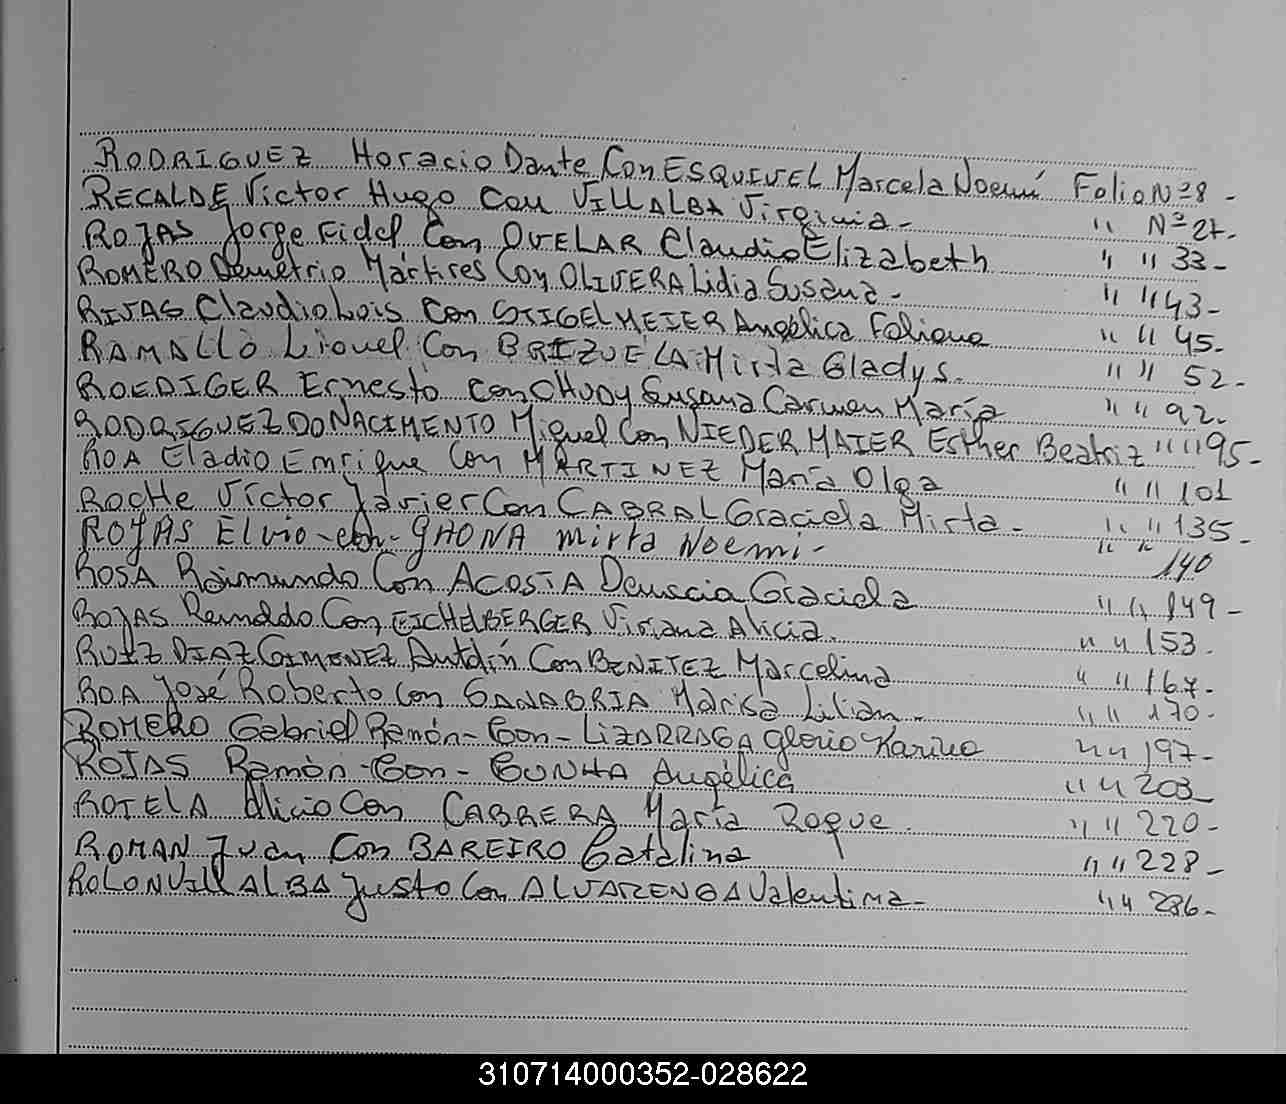 RODRIGUEZ Horacio Dante Con ESQUIVEL Marcela Noemí Folio Nº 8 -
RECALDE Víctor Hugo Con VILLALBA Virginia - " Nº 27-
ROJAS Jorge Fidel Con OVELAR Claudio Elizabeth " " 33-
ROMERO Demetrio Mártires Con OLIVERA Lidia Susana - " " 43-
RIVAS Claudio Luis Con STIGELMEIER Angélica " " 45-
RAMALLO Lionel Con BRIZUELA Mirta Gladys. " " 52-
ROEDIGER Ernesto Con CHUDY Susana Carmen María " " 92-
RODRIGUEZ DO NACIMENTO Miguel Con NIEDERMAIER Esther Beatriz " " 95-
ROA Eladio Enrique Con MARTINEZ María Olga " " 101
ROCHE Víctor Javier Con CABRAL Graciela Mirta - " " 135-
ROJAS Elvio - con - GHONA mirta Noemi - " " 140
ROSA Raimundo Con ACOSTA Graciela " " 149-
ROJAS Reinaldo Con EICHELBERGER Viviana Alicia. " " 153.
RUIZ DIAZ GIMENEZ Con BENITEZ Marcelina " " 167-
ROA José Roberto Con SANABRIA Marisa Lilian. " " 170-
ROMERO Gabriel Ramón - Con - LIZARRAGA Glorio Karina " " 197-
ROJAS Ramón - Con - CUNHA Angélica " " 203
ROTELA Alicio Con CABRERA María Roque. " " 220-
ROMAN Juan Con BAREIRO Catalina " " 228-
ROLON VILLALBA Justo Con ALVARENGA Valentina - " " 236-
310714000352-028622